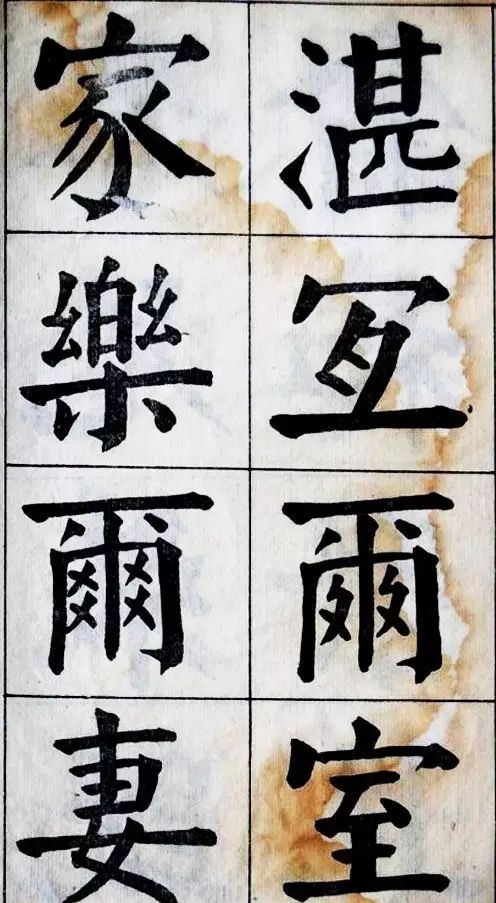 湛宜爾室
家樂爾妻